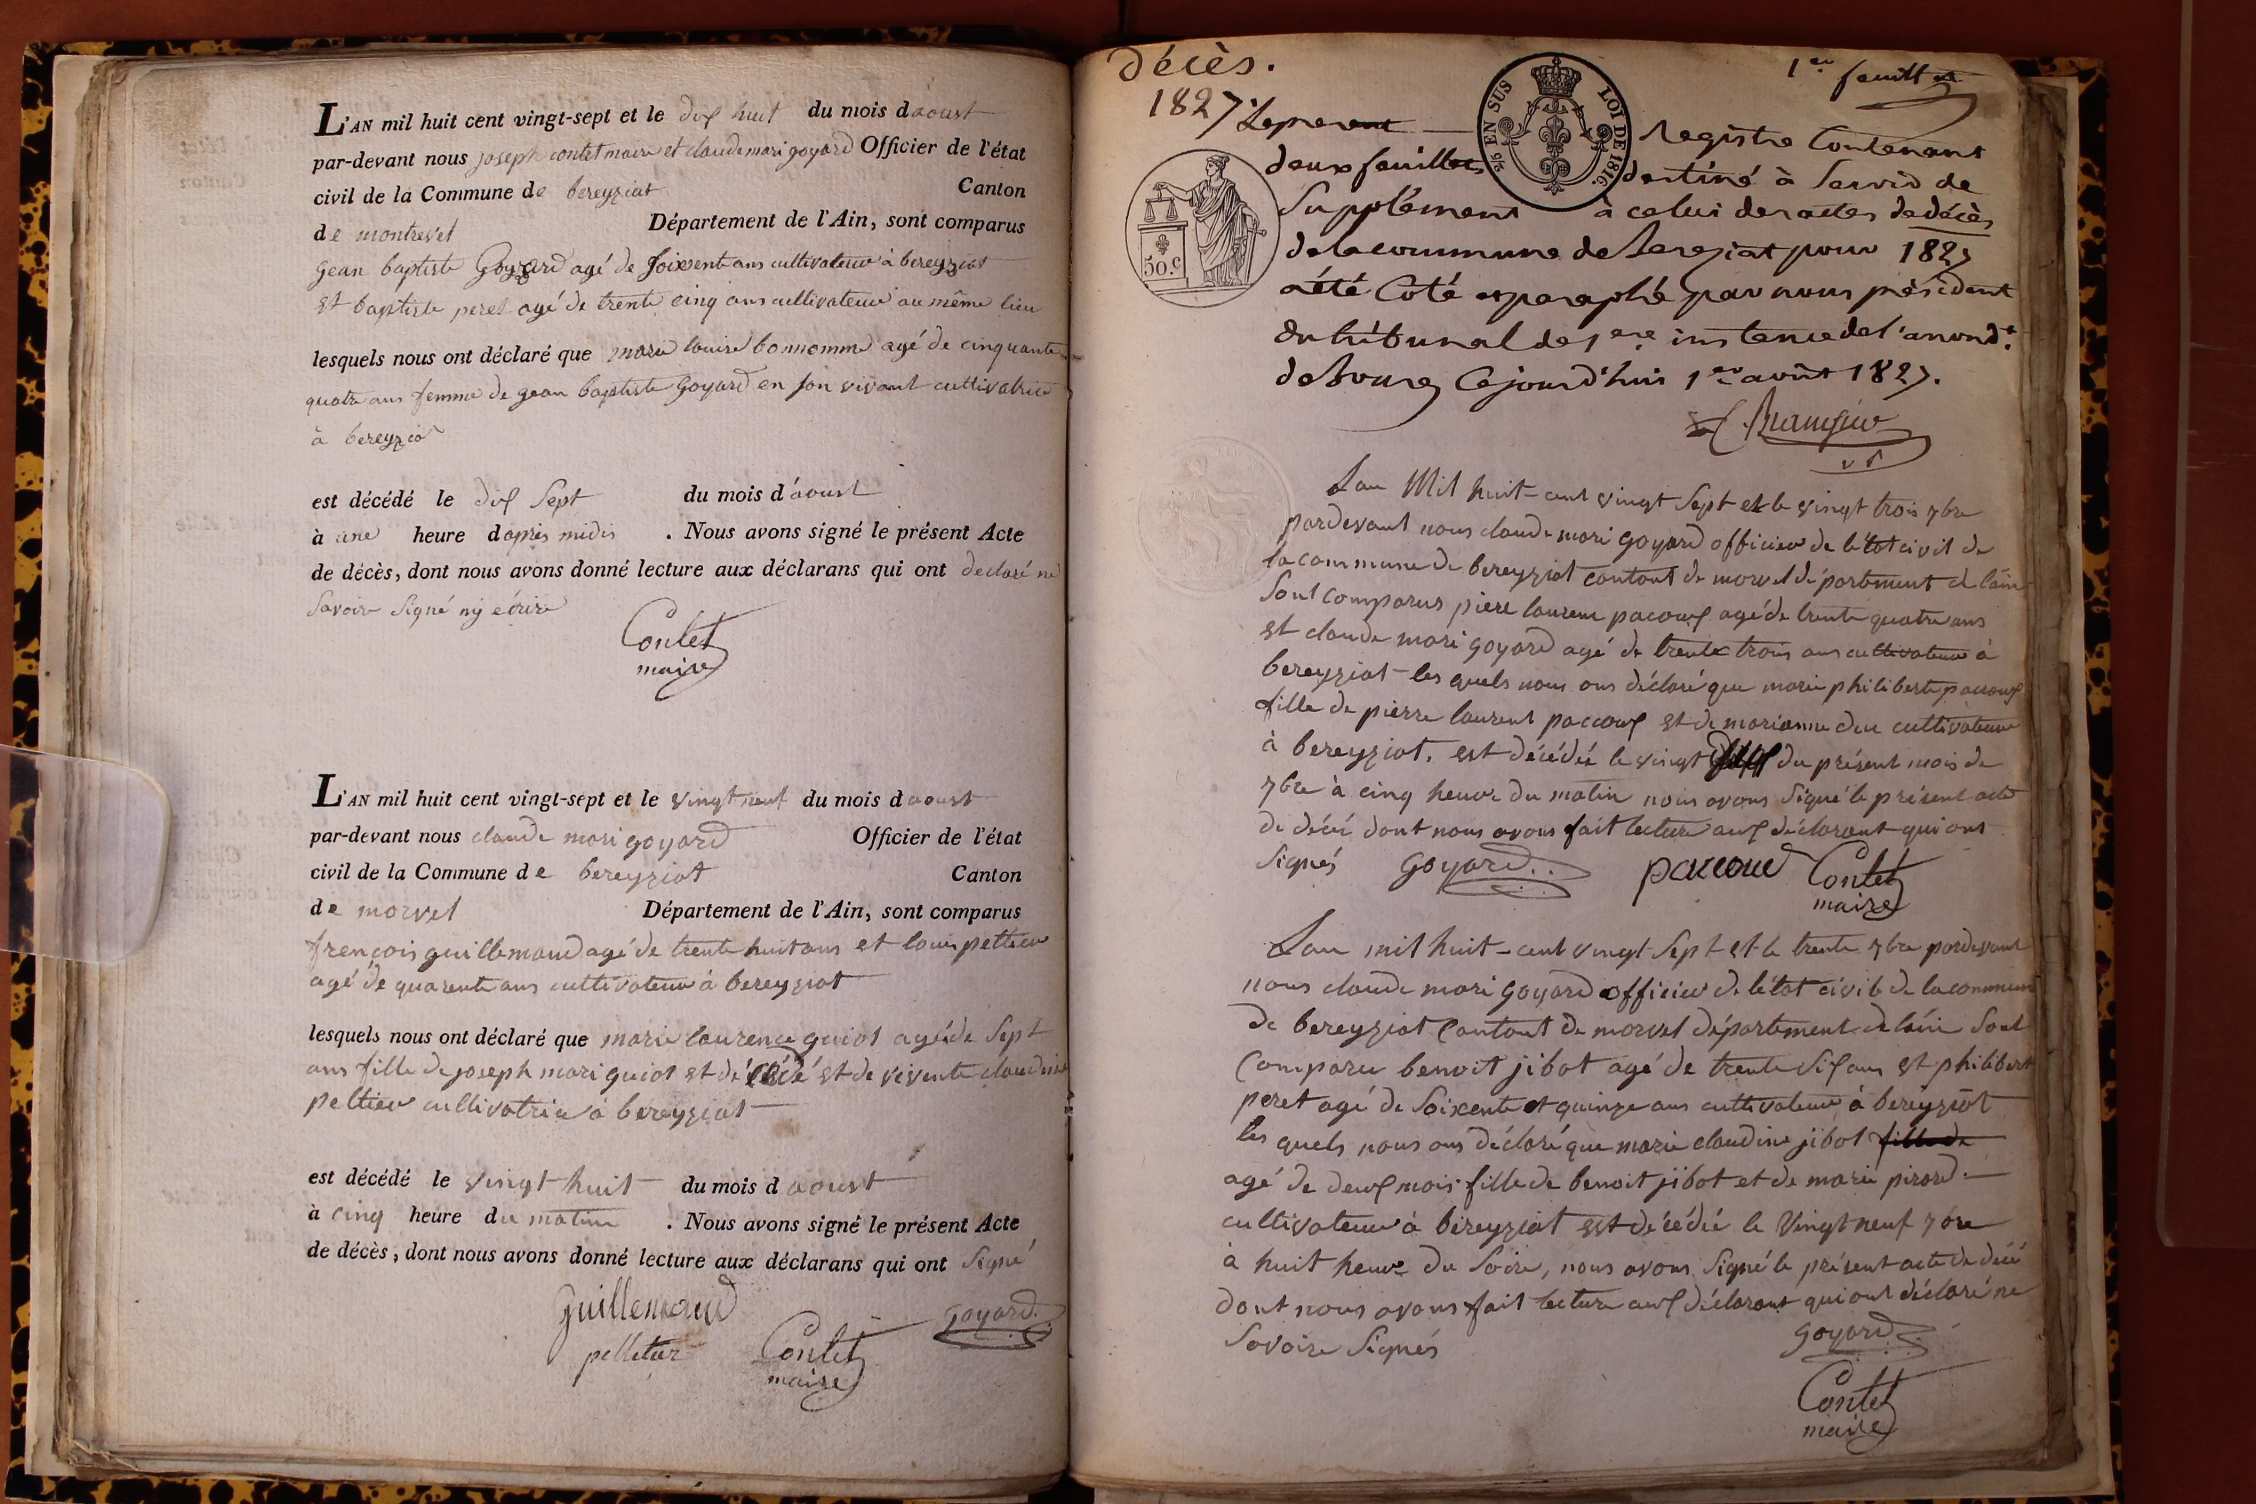 L'AN mil huit cent vingt-sept et le dix huit du mois daoust
par-devant nous joseph contet maire et claude mari goyard Officier de l'état
civil de la Commune de bereyziat Canton
de montrevel Département de l'Ain, sont comparus
gean baptiste Goyard agé de soixent ans cultivateur à bereyziat
et baptiste peret agé de trente cinq ans cultivateur au même lieu
lesquels nous ont déclaré que marie louise bonnomme agé de cinquante
quatre ans femme de gean baptiste Goyard en son vivant cultivatrice
à bereyziat
est décédé le dix sept du mois d'aoust
à une heure d'après midis . Nous avons signé le présent Acte
de décès, dont nous avons donné lecture aux déclarans qui ont declaré ne
savoire signé ny écrire
Contet
maire
L'AN mil huit cent vingt-sept et le vingt neuf du mois daoust
par-devant nous claude mari goyard Officier de l'état
civil de la Commune de bereyziat Canton
de morvel Département de l'Ain, sont comparus
françois guillemaud agé de trente huit ans et louis peltier
agé de quarente ans cultivateur à bereyziat
lesquels nous ont déclaré que marie laurence guiot agé de sept
ans fille de joseph mari guiot et décédé et de vivente claudine
peltier cultivatrice à bereyziat
est décédé le vingt huit du mois d aoust
à cinq heure du matin . Nous avons signé le présent Acte
de décès, dont nous avons donné lecture aux déclarans qui ont signé
guillemaud
pelletier
Contet
maire
goyard
décès.
1827.
1er feuillet
2/5 EN SUS LOI DE 1816.
50.c
Le present registre Contenant
deux feuillets destiné à Servir de
Supplément à celui des actes de décès
de la commune de Bereziat pour 1827
a été Coté et paraphé par nous président
du tribunal de 1ere instance de l'arrond.t
de Bourg Ce jourd'hui 1er août 1827.
Lan Mil huit-cent vingt sept et le vingt trois 7bre
pardevant nous claude mari goyard officier de létat civil de
la commune de bereyziat cantont de morvel département de lain
sont comparus piere laurent pacoux agé de trente quatre ans
et claude mari goyard agé de trente trois ans cultivateur à
bereyziat les quels nous ons déclaré que marie philiberte pacoux
fille de pierre laurent paccoux et de marianne duc cultivateur
à bereyziat. est décédée le vingt du présent mois de
7bre à cinq heure du matin nous avons signé le présent acte
de décé dont nous avons fait lecture aux déclarant qui ons
signés goyard paccoud Contet
maire
Lan mil huit-cent vingt sept et le trente 7bre pardevant
nous claude mari goyard officier de létat civile de la commune
de bereyziat Cantont de morvel département de lain sont
Comparu benoit jibot agé de trente six ans et philibert
peret agé de soixente et quinze ans cultivateur à bereyziat
les quels nous ons déclaré que marie claudine jibot fille de
agé de deux mois fille de benoit jibot et de marie pirard
cultivateur à bireyziat est décédée le vingt neuf 7bre
à huit heure du soire, nous avons signé le présent acte de décé
dont nous avons fait lecture aux déclarant qui ont déclaré ne
savoire signés
goyard
Contet
maire